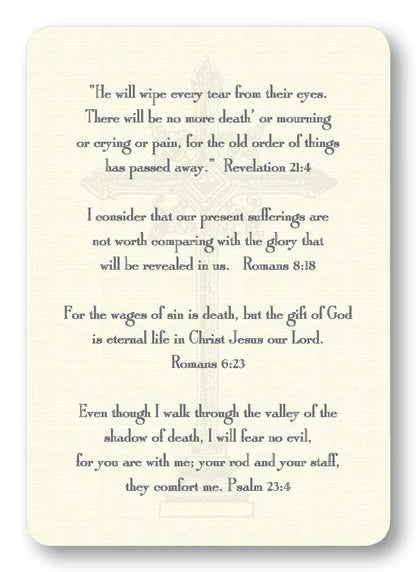 "He will wipe every tear from their eyes.
There will be no more death' or mourning
or crying or pain, for the old order of things
has passed away." Revelation 21:4
I consider that our present sufferings are
not worth comparing with the glory that
will be revealed in us. Romans 8:18
For the wages of sin is death, but the gift of God
is eternal life in Christ Jesus our Lord.
Romans 6:23
Even though I walk through the valley of the
shadow of death, I will fear no evil,
for you are with me; your rod and your staff,
they comfort me. Psalm 23:4